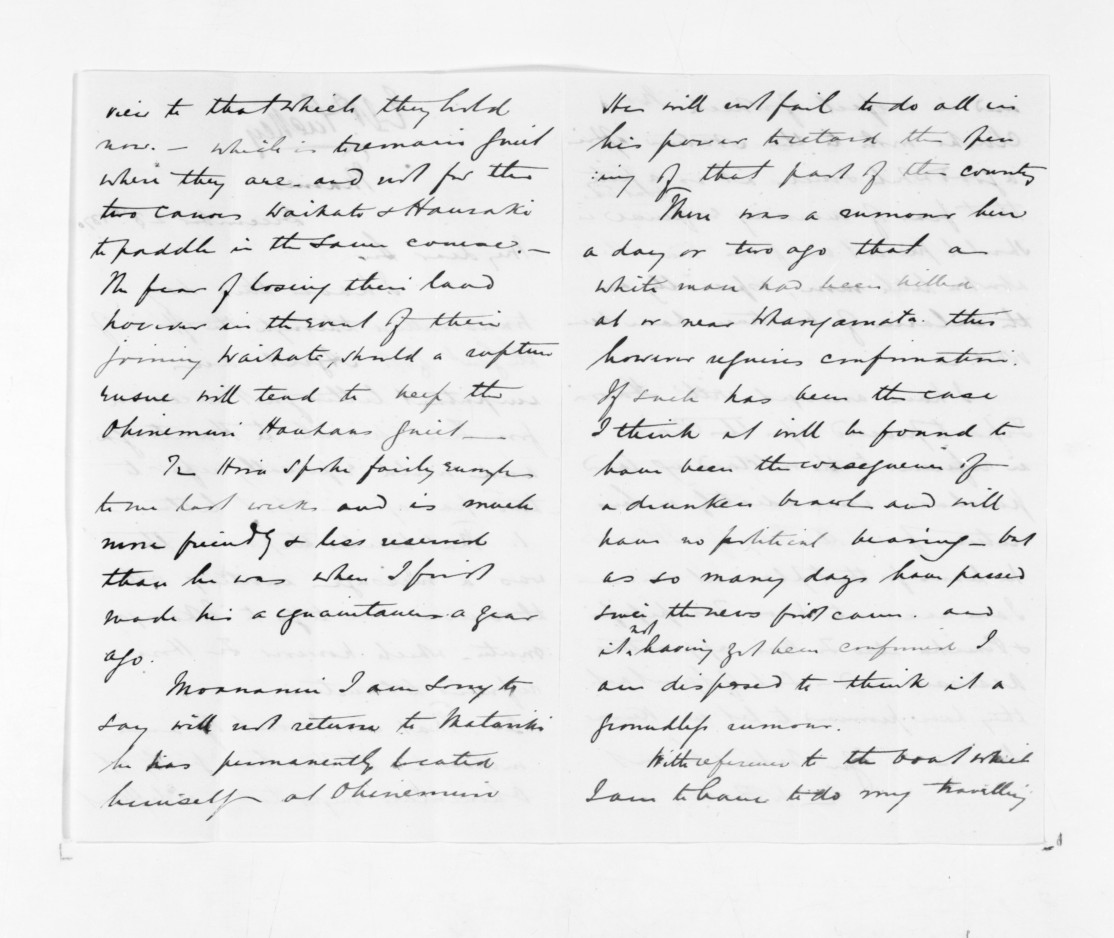 view to that which they hold
now. — which is to remain quiet
where they are and not for the
two canoes Waikato & Hauraki
to paddle in the same course. —
The fear of losing their land
however in the event of their
joining Waikato, should a rupture
ensue will tend to keep the
Ohinemuri Hauhaus quiet —
Te Hira spoke fairly enough
to me last week and is much
more friendly & less reserved
than he was when I first
made his acquaintance a year
ago.
Moananui I am sorry to
say will not return to Matariki
he has permanently located
himself at Ohinemuri
He will not fail to do all in
his power to retard the open
:ing of that part of the country
There was a rumour here
a day or two ago that a
white man had been killed
at or near Whangamata. this
however requires confirmation.
If such has been the case
I think it will be found to
have been the consequence of
a drunken brawl and will
have no political bearing — but
as so many days have passed
since the news first came. and
it not having yet been confirmed I
am disposed to think it a
groundless rumour.
With reference to the boat which
I am to have to do my travelling